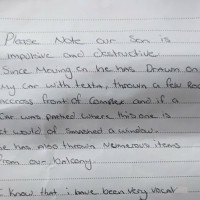 Please Note our Son is
impulsive and destructive.
Since Moving in he has Drawn on
My Car with texta, thrown a few Roc
accross front of Complex and if a
Car was parked where this one is
it would of Smashed a window.
he has also thrown Numerous items
from our balcony.
I know that i have been very vocal